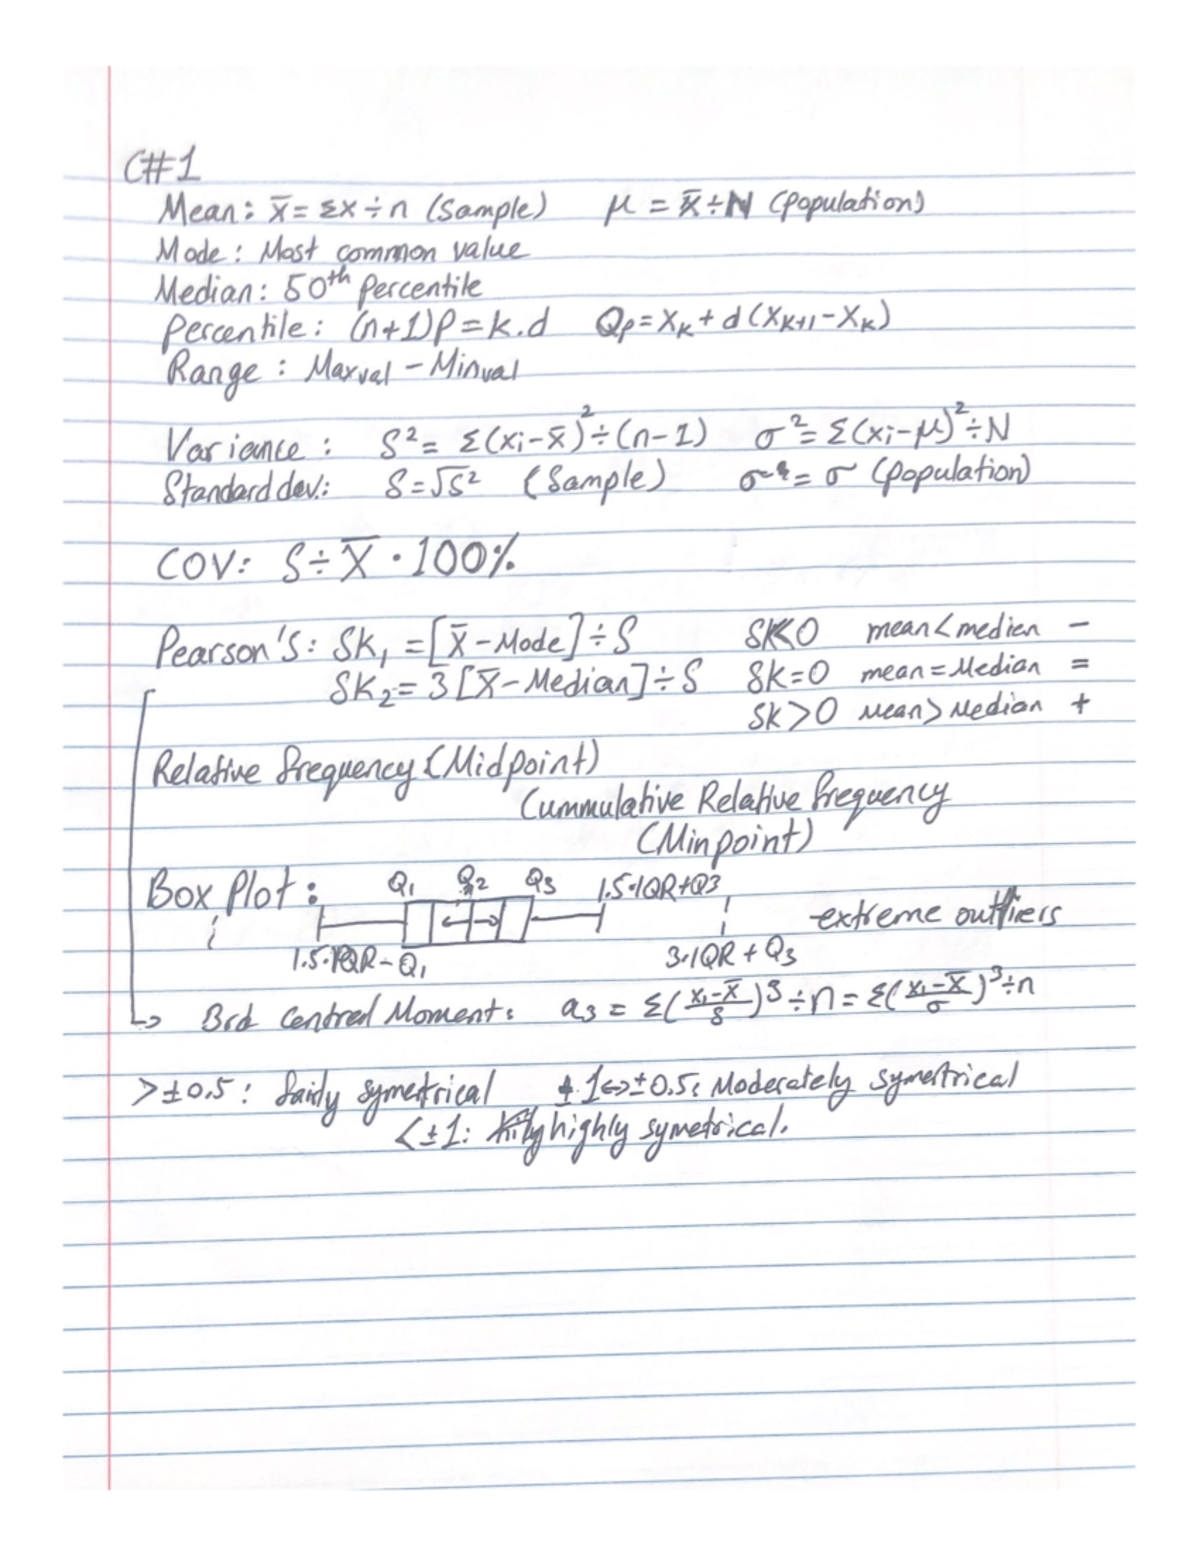 C#1
Mean: x̄ = Σx ÷ n (Sample) μ = x̄ ÷ N (population)
Mode: Most common value
Median: 50th Percentile
Percentile: (n+1)P = k.d Qp = Xk + d(Xk+1 - Xk)
Range: Maxval - Minval
Variance: S² = Σ(xi - x̄)² ÷ (n-1) σ² = Σ(xi - μ)² ÷ N
Standard dev.: S = √S² (Sample) = σ (population)
COV: S ÷ X̄ · 100%
Pearson's: SK₁ = [X̄ - Mode] ÷ S SK<0 mean < median -
SK₂ = 3[X̄ - Median] ÷ S SK=0 mean = Median =
SK>0 Mean > Median +
Relative frequency (Midpoint)
Cummulative Relative frequency
(Minpoint)
Box Plot: Q₁ Q2 Q3 1.5·IQR+Q3
extreme outliers
1.5·IQR - Q₁ 3·IQR + Q₃
3rd Central Moment: a₃ = Σ((xi - x̄)/S)³ ÷ n = Σ((xi - x̄)/σ)³ ÷ n
>±0.5: fairly symetrical ±1↔±0.5: Moderately symetrical
<±1: highly symetrical.